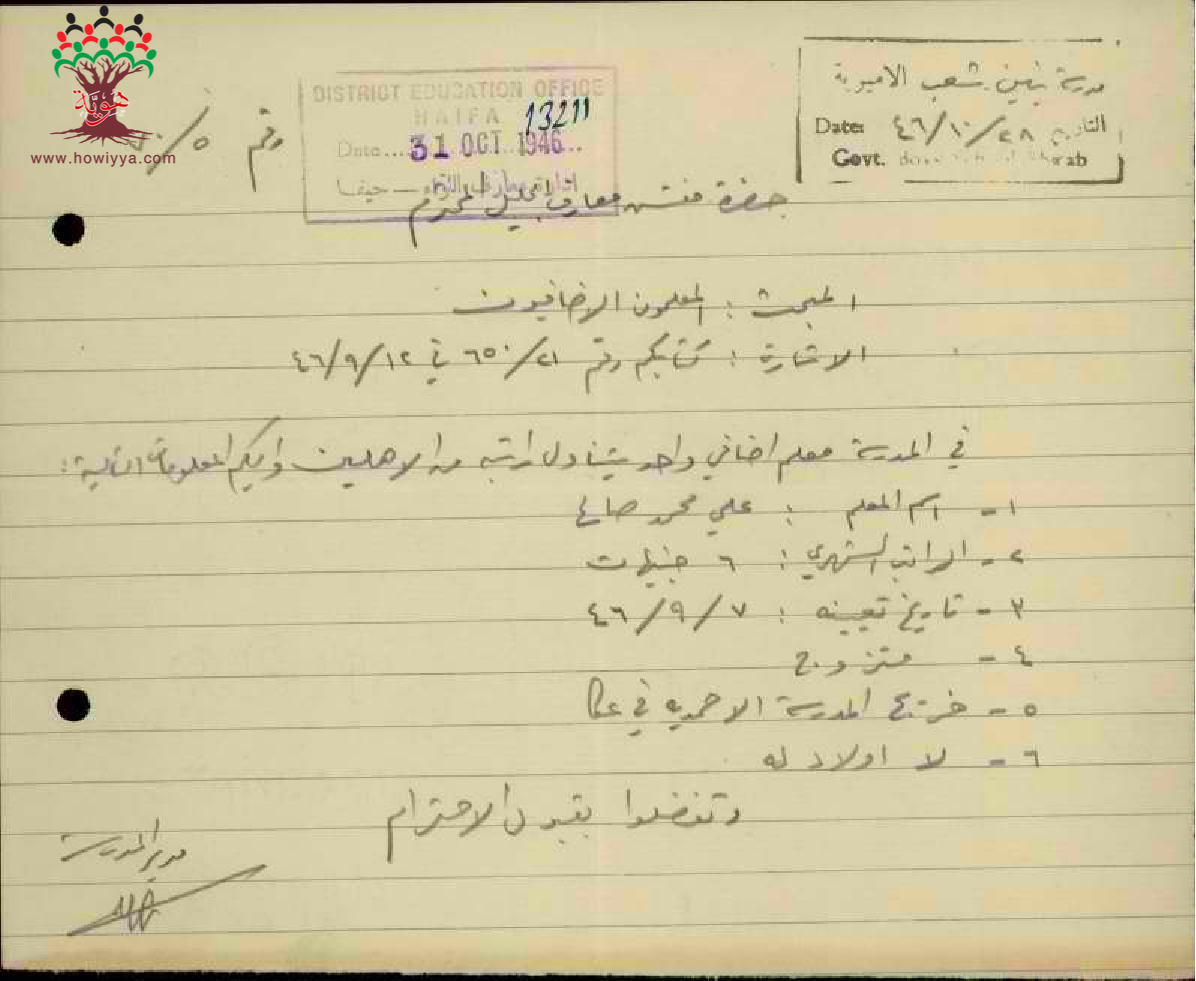 هوية
www.howiyya.com
رقم ٥/
DISTRICT EDUCATION OFFICE
HAIFA
13211
Date... 31 OCT 1946..
ادارة معارف اللواء — حيفا
مدرسة بنين شعب الاميرية
التاريخ ٤٦/١٠/٢٨ Date:
Govt. Boys School Sha'ab
حضرة مفتش معارف الجليل المحترم
المبحث : المعلمون الاضافيون
الاشارة : كتابكم رقم ٦٥٠/٢١ في ٤٦/٩/١٢
في المدرسة معلم اضافي واحد يتناول راتبه من الاهلين واليكم المعلومات التالية :
١ - اسم المعلم : علي محمد صالح
٢ - الراتب الشهري : ٦ جنيهات
٣ - تاريخ تعيينه : ٤٦/٩/٧
٤ - متزوج
٥ - خريج المدرسة الاحمدية في عكا
٦ - لا اولاد له
وتفضلوا بقبول الاحترام
مدير المدرسة